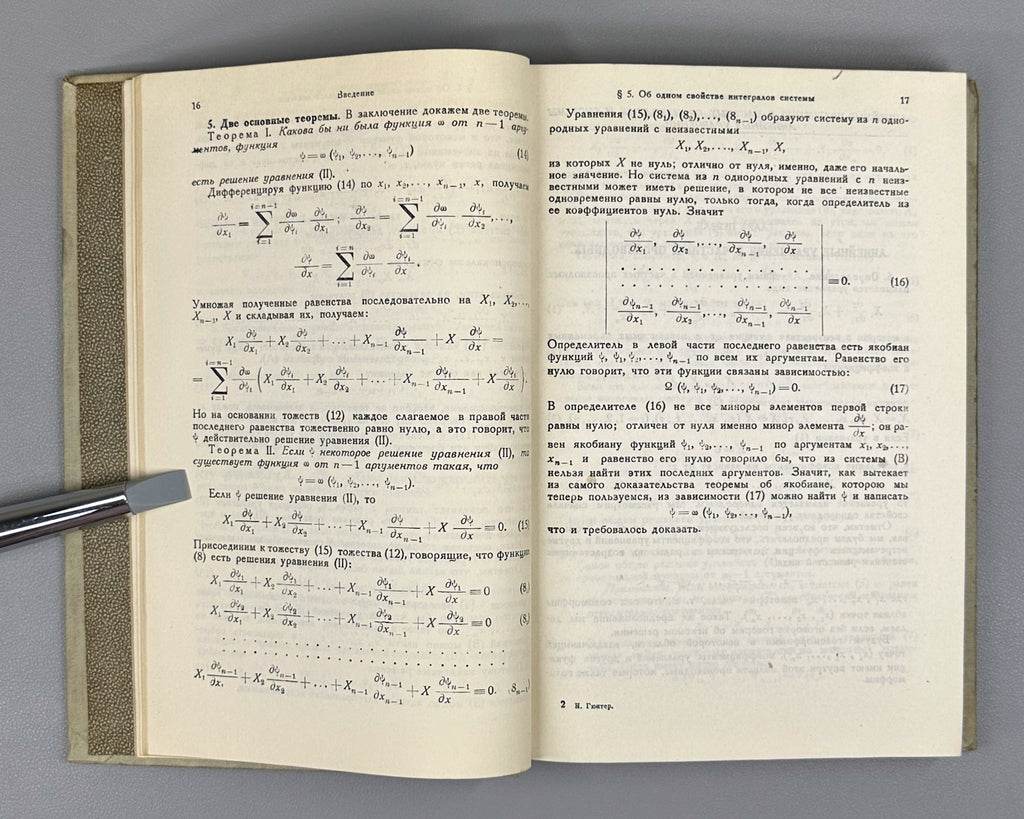 16
Введение
5. Две основные теоремы. В заключение докажем две теоремы.
Теорема I. Какова бы ни была функция ω от n—1 аргу-
ментов, функция
ψ = ω (ψ₁, ψ₂,..., ψₙ₋₁) (14)
есть решение уравнения (II).
Дифференцируя функцию (14) по x₁, x₂,..., xₙ₋₁, x, получаем
∂ψ/∂x₁ = ∑_{i=1}^{i=n−1} ∂ω/∂ψᵢ ∂ψᵢ/∂x₁; ∂ψ/∂x₂ = ∑_{i=1}^{i=n−1} ∂ω/∂ψᵢ ∂ψᵢ/∂x₂,...,
∂ψ/∂x = ∑_{i=1}^{i=n} ∂ω/∂ψᵢ ∂ψᵢ/∂x.
Умножая полученные равенства последовательно на X₁, X₂,...
Xₙ₋₁, X и складывая их, получаем:
X₁ ∂ψ/∂x₁ + X₂ ∂ψ/∂x₂ + ... + Xₙ₋₁ ∂ψ/∂xₙ₋₁ + X ∂ψ/∂x =
= ∑_{i=1}^{i=n−1} ∂ω/∂ψᵢ (X₁ ∂ψᵢ/∂x₁ + X₂ ∂ψᵢ/∂x₂ + ... + Xₙ₋₁ ∂ψᵢ/∂xₙ₋₁ + X ∂ψᵢ/∂x).
Но на основании тожеств (12) каждое слагаемое в правой части
последнего равенства тожественно равно нулю, а это говорит, что
ψ действительно решение уравнения (II).
Теорема II. Если ψ некоторое решение уравнения (II), то
существует функция ω от n—1 аргументов такая, что
ψ = ω (ψ₁, ψ₂,..., ψₙ₋₁).
Если ψ решение уравнения (II), то
X₁ ∂ψ/∂x₁ + X₂ ∂ψ/∂x₂ + ... + Xₙ₋₁ ∂ψ/∂xₙ₋₁ + X ∂ψ/∂x ≡ 0. (15)
Присоединим к тожеству (15) тожества (12), говорящие, что функции
(8) есть решения уравнения (II):
X₁ ∂ψ₁/∂x₁ + X₂ ∂ψ₁/∂x₂ + ... + Xₙ₋₁ ∂ψ₁/∂xₙ₋₁ + X ∂ψ₁/∂x ≡ 0 (8₁)
X₁ ∂ψ₂/∂x₁ + X₂ ∂ψ₂/∂x₂ + ... + Xₙ₋₁ ∂ψ₂/∂xₙ₋₁ + X ∂ψ₂/∂x ≡ 0 (8₂)
. . . . . . . . . . . . . . . . . . . .
. . . . . . . . . . . . . . . . . . . .
X₁ ∂ψₙ₋₁/∂x₁ + X₂ ∂ψₙ₋₁/∂x₂ + ... + Xₙ₋₁ ∂ψₙ₋₁/∂xₙ₋₁ + X ∂ψₙ₋₁/∂x ≡ 0. (8ₙ₋₁)
§ 5. Об одном свойстве интегралов системы
17
Уравнения (15), (8₁), (8₂),..., (8ₙ₋₁) образуют систему из n одно-
родных уравнений с неизвестными
X₁, X₂,..., Xₙ₋₁, X,
из которых X не нуль; отлично от нуля, именно, даже его началь-
ное значение. Но система из n однородных уравнений с n неиз-
вестными может иметь решение, в котором не все неизвестные
одновременно равны нулю, только тогда, когда определитель из
ее коэффициентов нуль. Значит
| ∂ψ/∂x₁, ∂ψ/∂x₂,..., ∂ψ/∂xₙ₋₁, ∂ψ/∂x |
| . . . . . . . . . . . . . . . . |
| . . . . . . . . . . . . . . . . | = 0. (16)
| ∂ψₙ₋₁/∂x₁, ∂ψₙ₋₁/∂x₂,..., ∂ψₙ₋₁/∂xₙ₋₁, ∂ψₙ₋₁/∂x |
Определитель в левой части последнего равенства есть якобиан
функций ψ, ψ₁, ψ₂,..., ψₙ₋₁ по всем их аргументам. Равенство его
нулю говорит, что эти функции связаны зависимостью:
Ω (ψ, ψ₁, ψ₂,..., ψₙ₋₁) = 0. (17)
В определителе (16) не все миноры элементов первой строки
равны нулю; отличен от нуля именно минор элемента ∂ψ/∂x; он ра-
вен якобиану функций ψ₁, ψ₂,..., ψₙ₋₁ по аргументам x₁, x₂,...
xₙ₋₁ и равенство его нулю говорило бы, что из системы (B)
нельзя найти этих последних аргументов. Значит, как вытекает
из самого доказательства теоремы об якобиане, которою мы
теперь пользуемся, из зависимости (17) можно найти ψ и написать
ψ = ω (ψ₁, ψ₂,..., ψₙ₋₁),
что и требовалось доказать.
2 Н. Гюнтер.